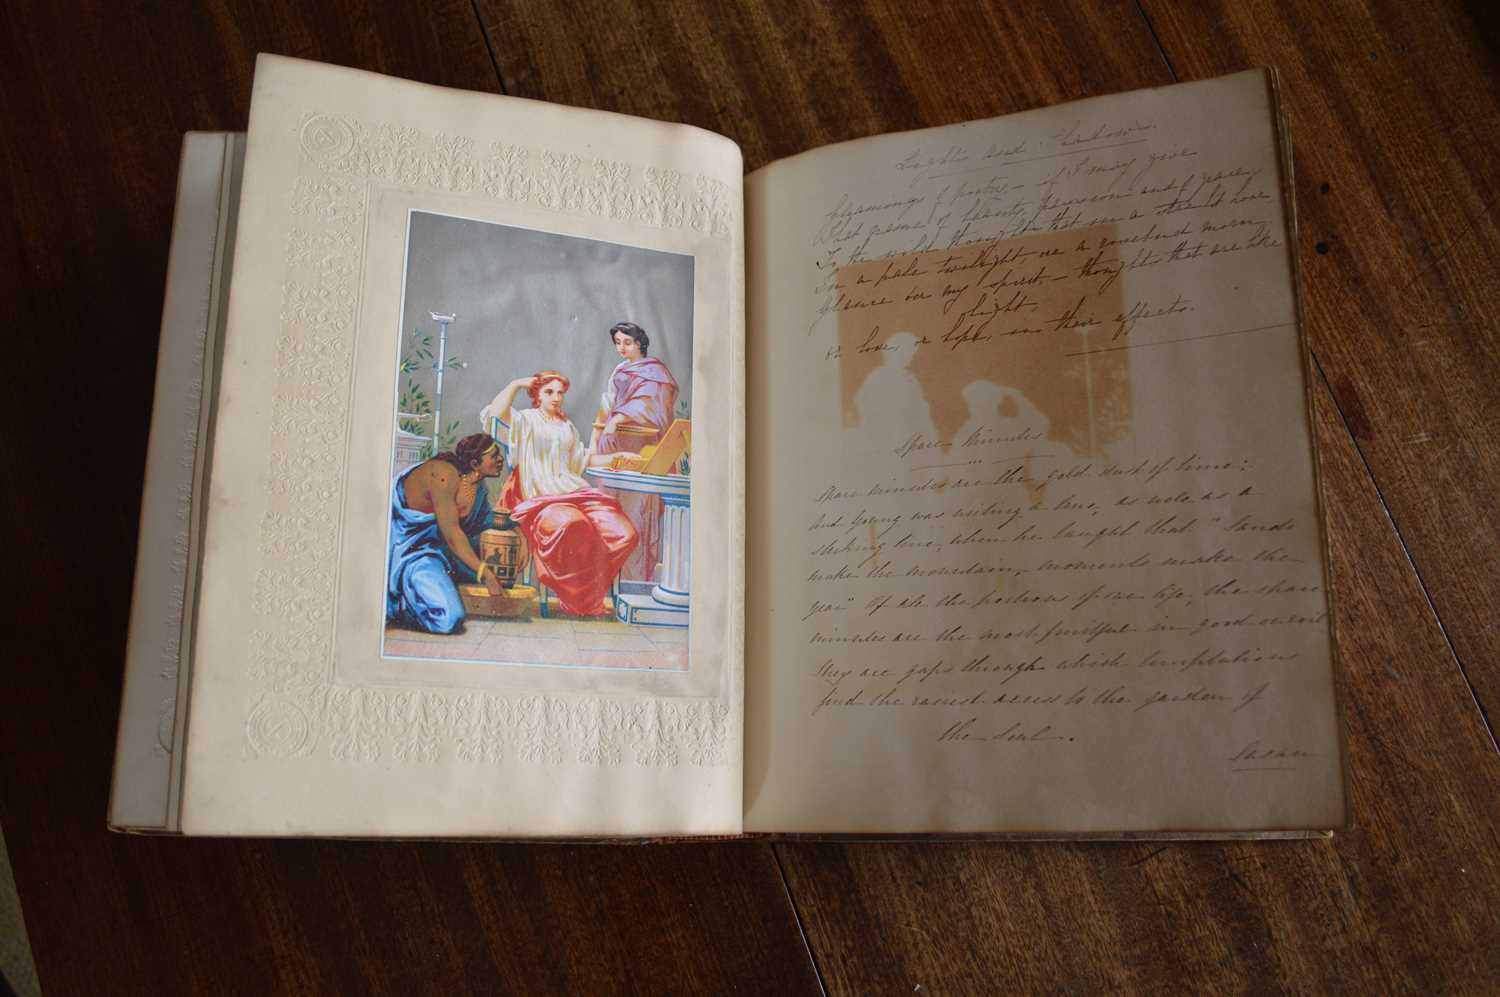 Lights and Shadows.
Gleamings of poetry,— if I may give
That name of beauty, passion and of grace,
To the wild thoughts that in a starlit hour
In a pale twilight or a rosebud morn
glance o'er my spirit,— thoughts that are like
light,
Or love, or hope, in their effects.
Spare Minutes
Spare minutes are the gold dust of time;
and Young was writing a true, as well as a
striking line, when he taught that "Sands
make the mountain, moments make the
year" Of all the portions of our life, the spare
minutes are the most fruitful in good or evil
They are gaps through which temptations
find the easiest access to the garden of
the Soul.
Susan